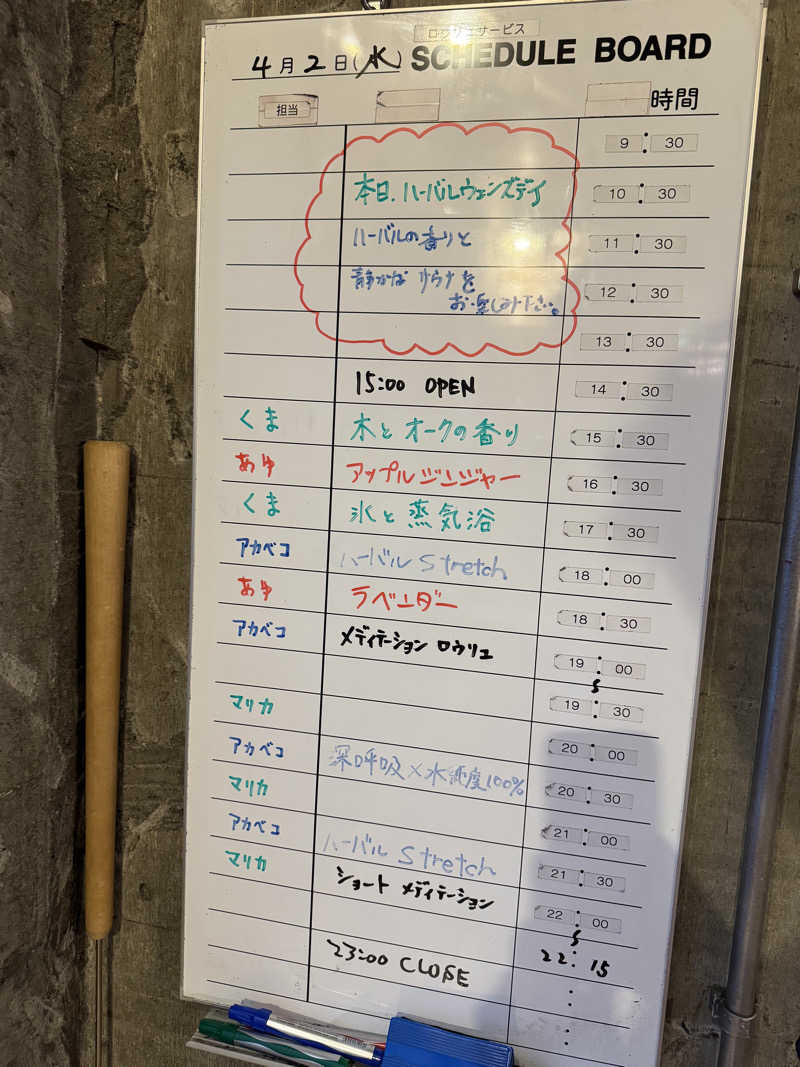 ロウリュサービス
4月2日(水) SCHEDULE BOARD
担当 時間
9:30
本日、ハーバルウェンズデイ 10:30
ハーバルの香りと 11:30
静かな サウナを 12:30
お楽しみ下さい。
13:30
15:00 OPEN 14:30
くま 木とオークの香り 15:30
あゆ アップルジンジャー 16:30
くま 氷と蒸気浴 17:30
アカベコ ハーバル Stretch 18:00
あゆ ラベンダー 18:30
アカベコ メディテーション ロウリュ 19:00
マリカ 19:30
アカベコ 深呼吸×水純度100% 20:00
マリカ 20:30
アカベコ ハーバル Stretch 21:00
マリカ 21:30
ショート メディテーション 22:00
22:15
23:00 CLOSE